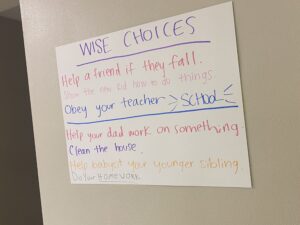 WISE CHOICES
Help a friend if they fall.
Show the new kid how to do things
Obey your teacher SCHOOL
Help your dad work on something.
Clean the house.
Help babysit your younger sibling.
Do your HOMEWORK